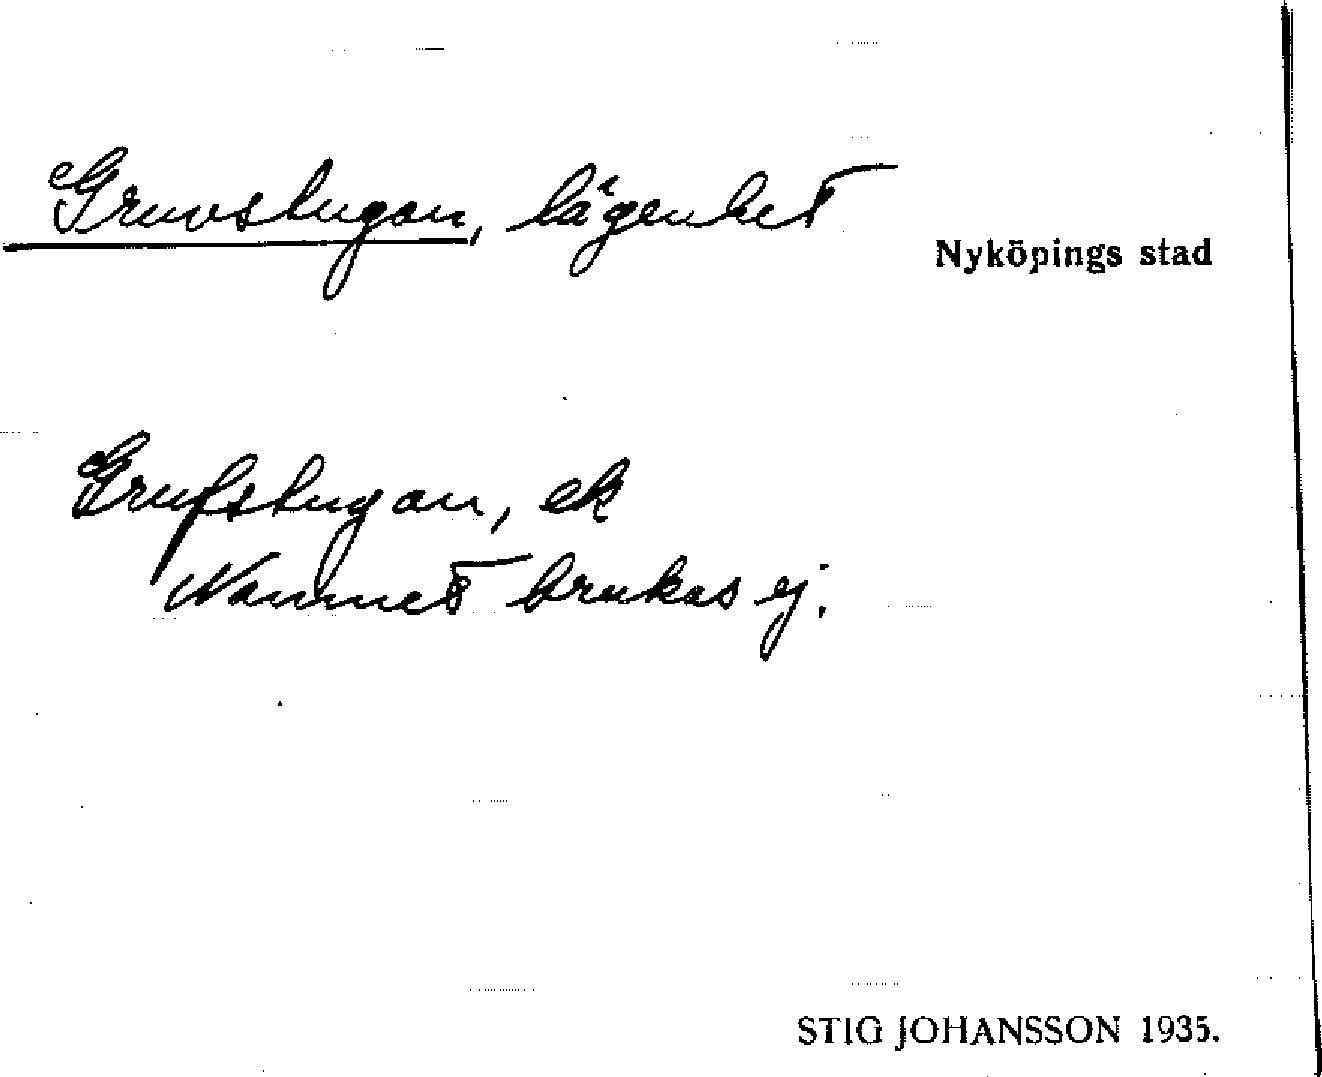 Gruvstugan, lägenhet
Nyköpings stad
Grufstugan, ek
Namnet brukas ej.
STIG JOHANSSON 1935.